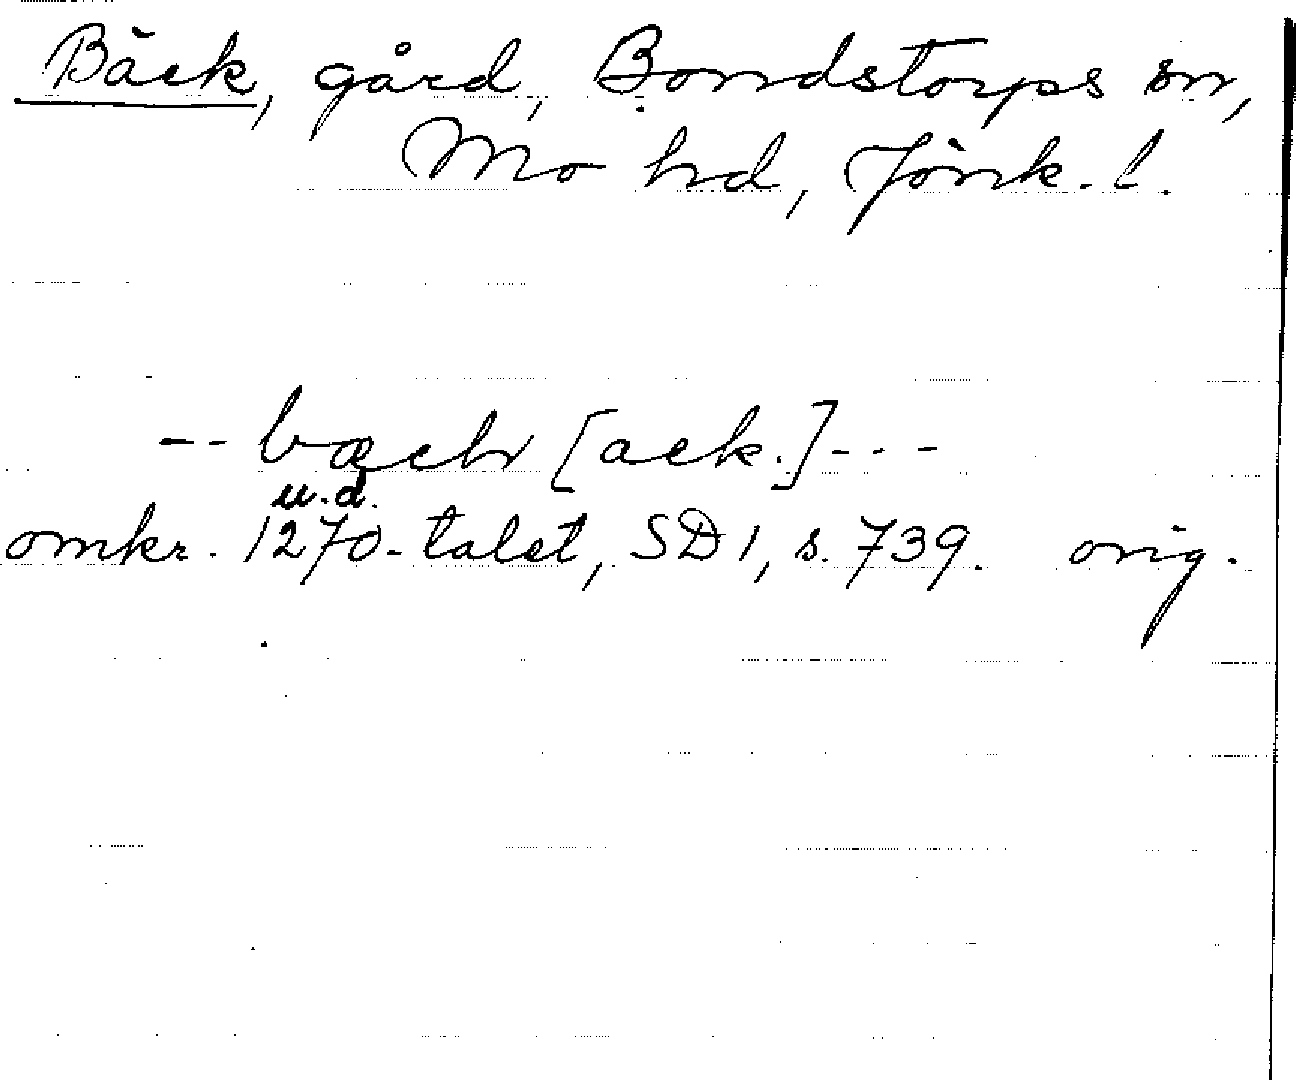 Bäck, gård, Bondstorps sn,
Mo hd, Jönk. l.
-- bæch [ack.] ---
u.d.
omkr. 1270-talet, SD 1, s. 739. orig.